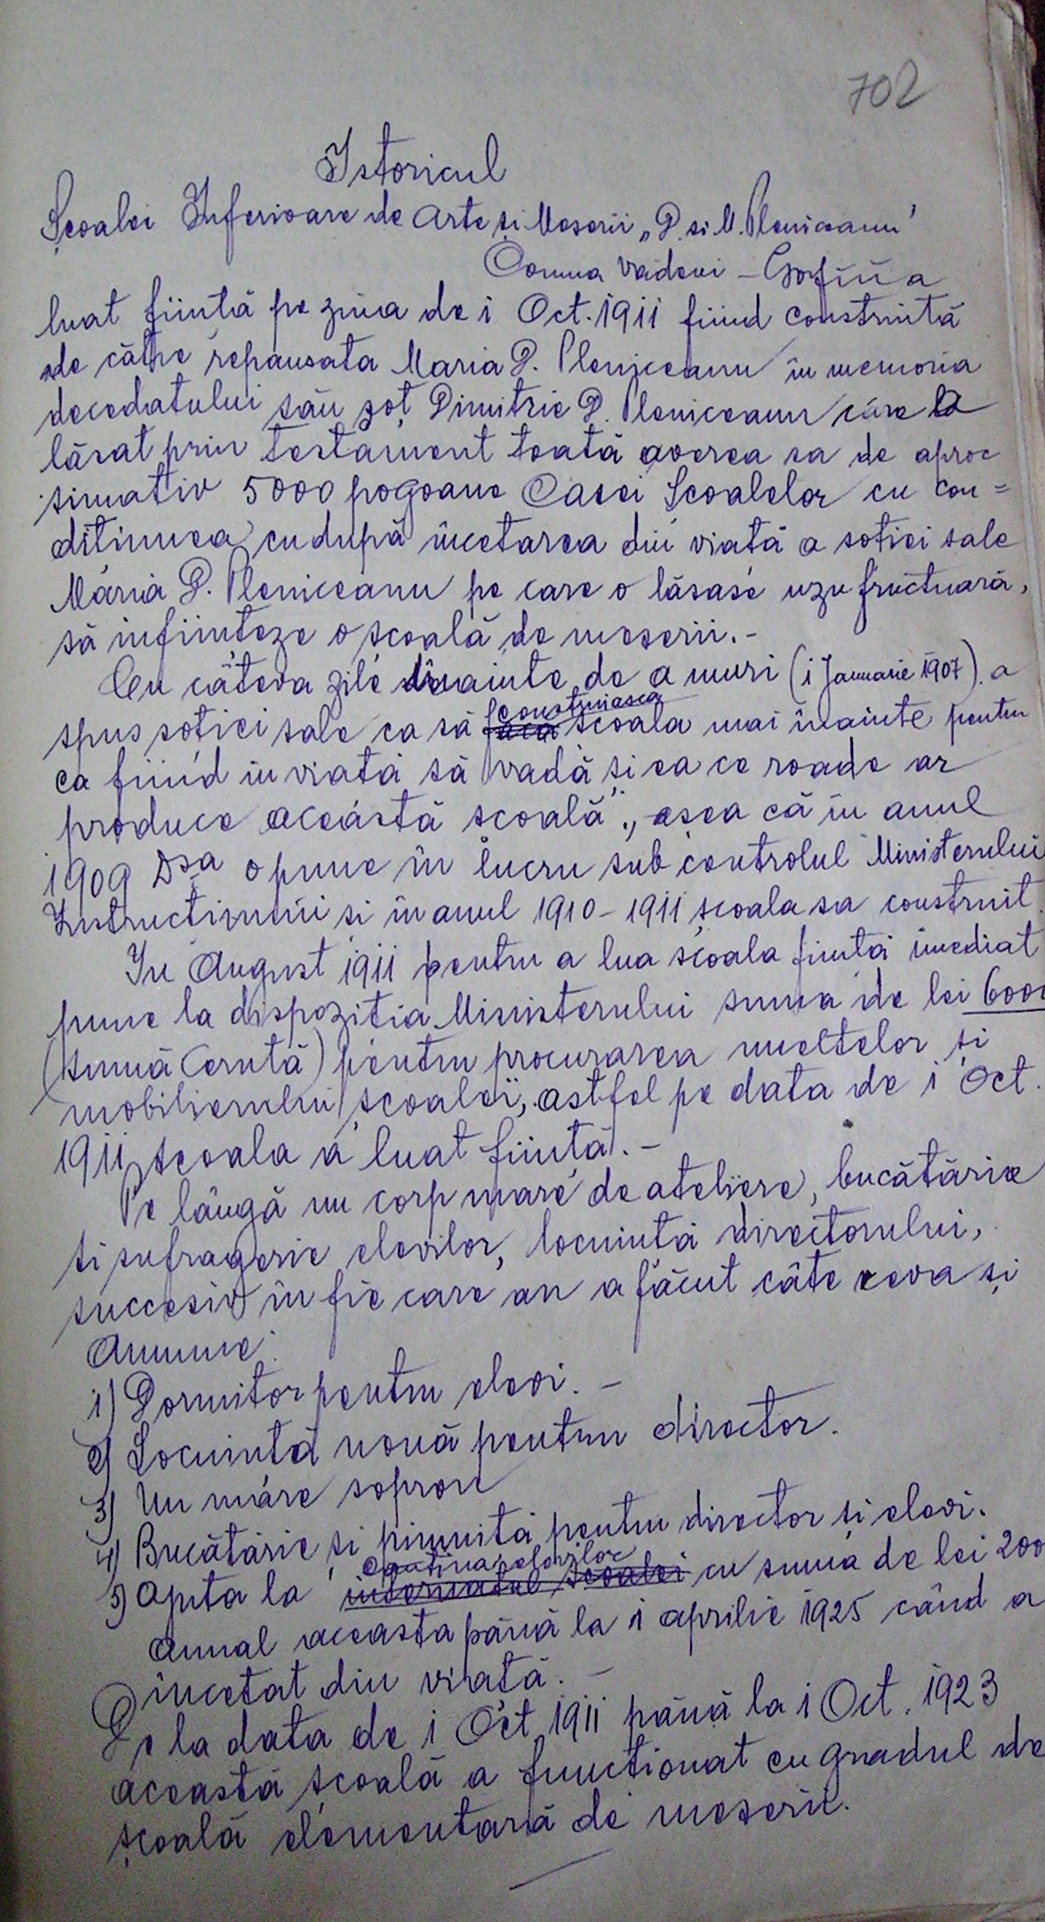 702
Istoricul
Școalei Inferioare de Arte și Meserii „D. si M. Pleniceanu"
Comuna Vădeni – Gorj a
luat ființă pe ziua de 1 Oct. 1911 fiind construită
de către repausata Maria D. Pleniceanu în memoria
decedatului său soț Dimitrie D. Pleniceanu care a
lăsat prin testament toată averea sa de aproc
simativ 5000 pogoane Casei Școalelor cu con=
ditiunea cu după încetarea din viată a sotiei sale
Maria D. Pleniceanu pe care o lăsase uzufructuară,
să infiinteze o scoală de meserii.-
Cu câteva zile înainte de a muri (1 Januarie 1907) a
construiasca
spus sotiei sale ca să facă scoala mai înainte pentru
ca fiind in viată să vadă și ea ce roade ar
produce această școală", asea că în anul
1909 Dsa o pune în lucru sub controlul Ministerului
Instrucțiunii si in anul 1910-1911 școala sa construit
In August 1911 pentru a lua scoala ființă imediat
pune la dispozitia Ministerului suma de lei 6000
(sumă cerută) pentru procurarea uneltelor și
mobilierului școalei, astfel pe data de 1 Oct.
1911 scoala a luat ființă.-
Pe lângă un corp mare de ateliere, bucătărie
si sufragerie elevilor, locuinta directorului,
succesiv în fie care an a făcut câte ceva și
Anume:
1) Dormitor pentru elevi.-
2) Locuintă nouă pentru director.
3) Un mare sopron
4) Bucătărie și pimnită pentru director și elevi.
cantina elevilor
5) Ajuta la internatul scoalei cu suma de lei 200
anual aceasta până la 1 aprilie 1925 când a
încetat din viată.-
De la data de 1 Oct 1911 până la 1 Oct. 1923
această școală a functionat cu gradul de
școală elementară de meserii.